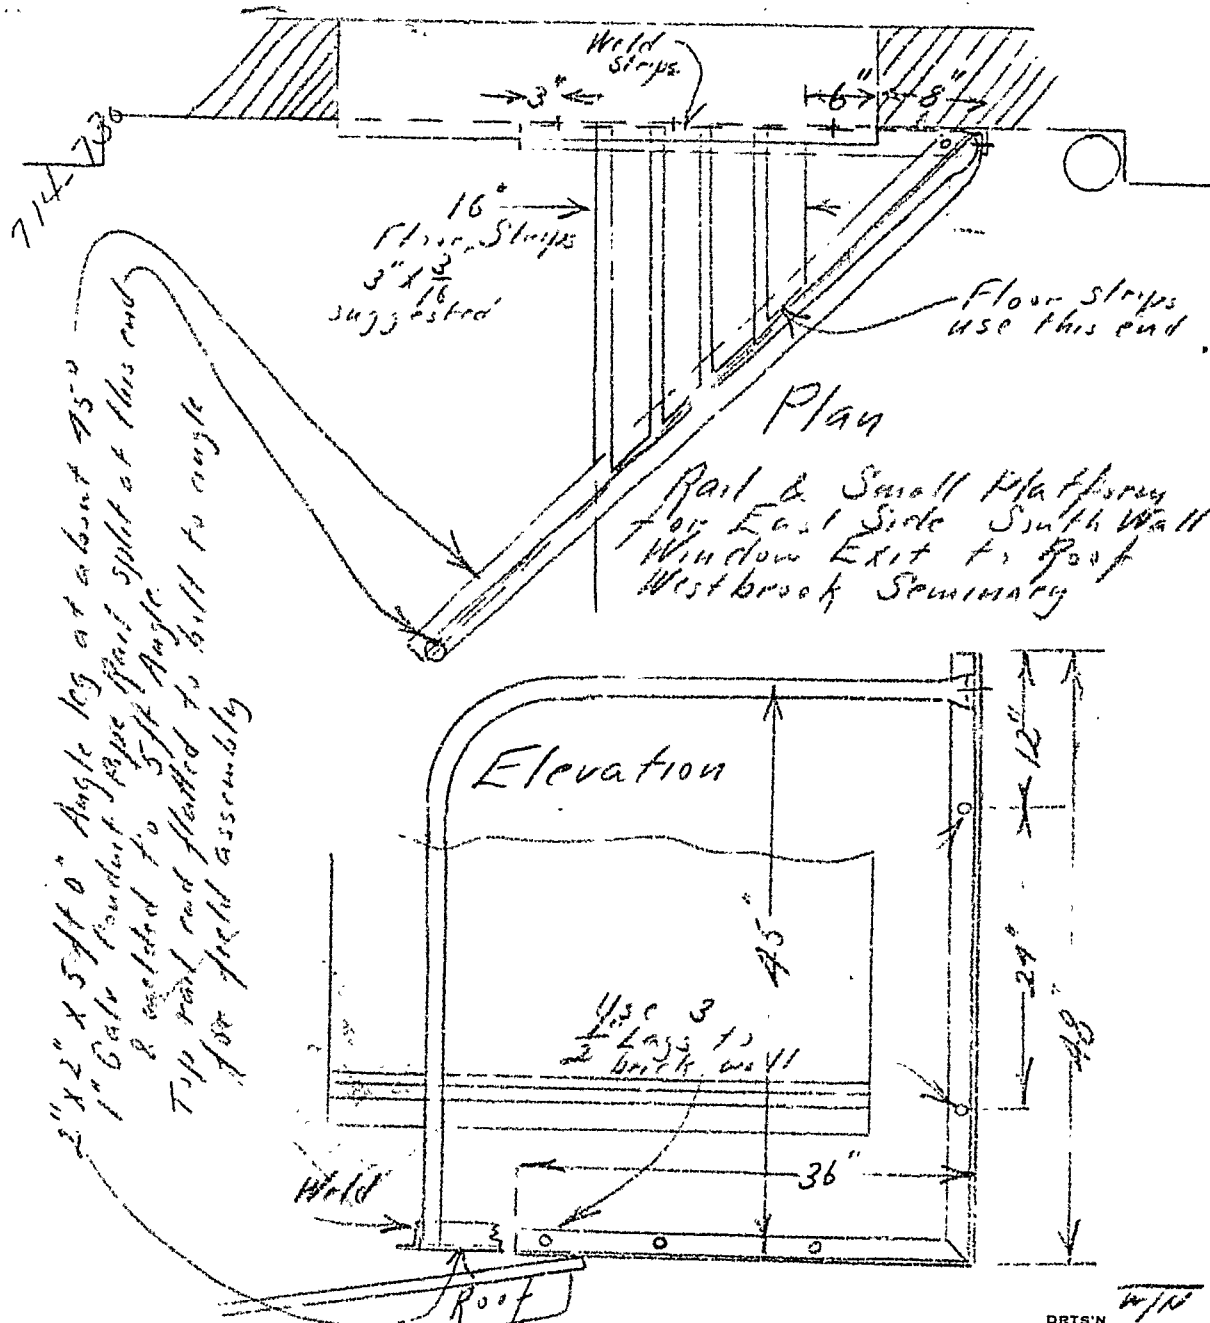 Weld
strips
3"
6"
8"
714-730
16"
Floor Strips
3" x 3/16
suggested
Floor strips
use this end
Plan
Rail & Small Platform
for East Side South Wall
Window Exit to Roof
Westbrook Seminary
2" x 2" x 5 ft 0" Angle leg at about 45°
1" Galv Conduit Pipe Rail split at this end
& welded to 5 ft Angle
Top rail end flatted to bolt to angle
for field assembly
Elevation
12"
45"
24"
48"
Use 3
1/2 Lags to
brick wall
36"
Weld
Roof
W/N
DRTS'N